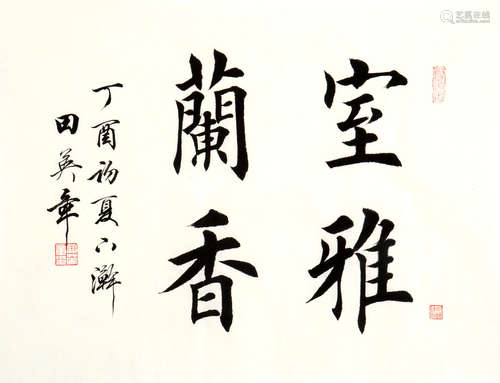 室雅
蘭香
丁酉初夏下澣
田英章